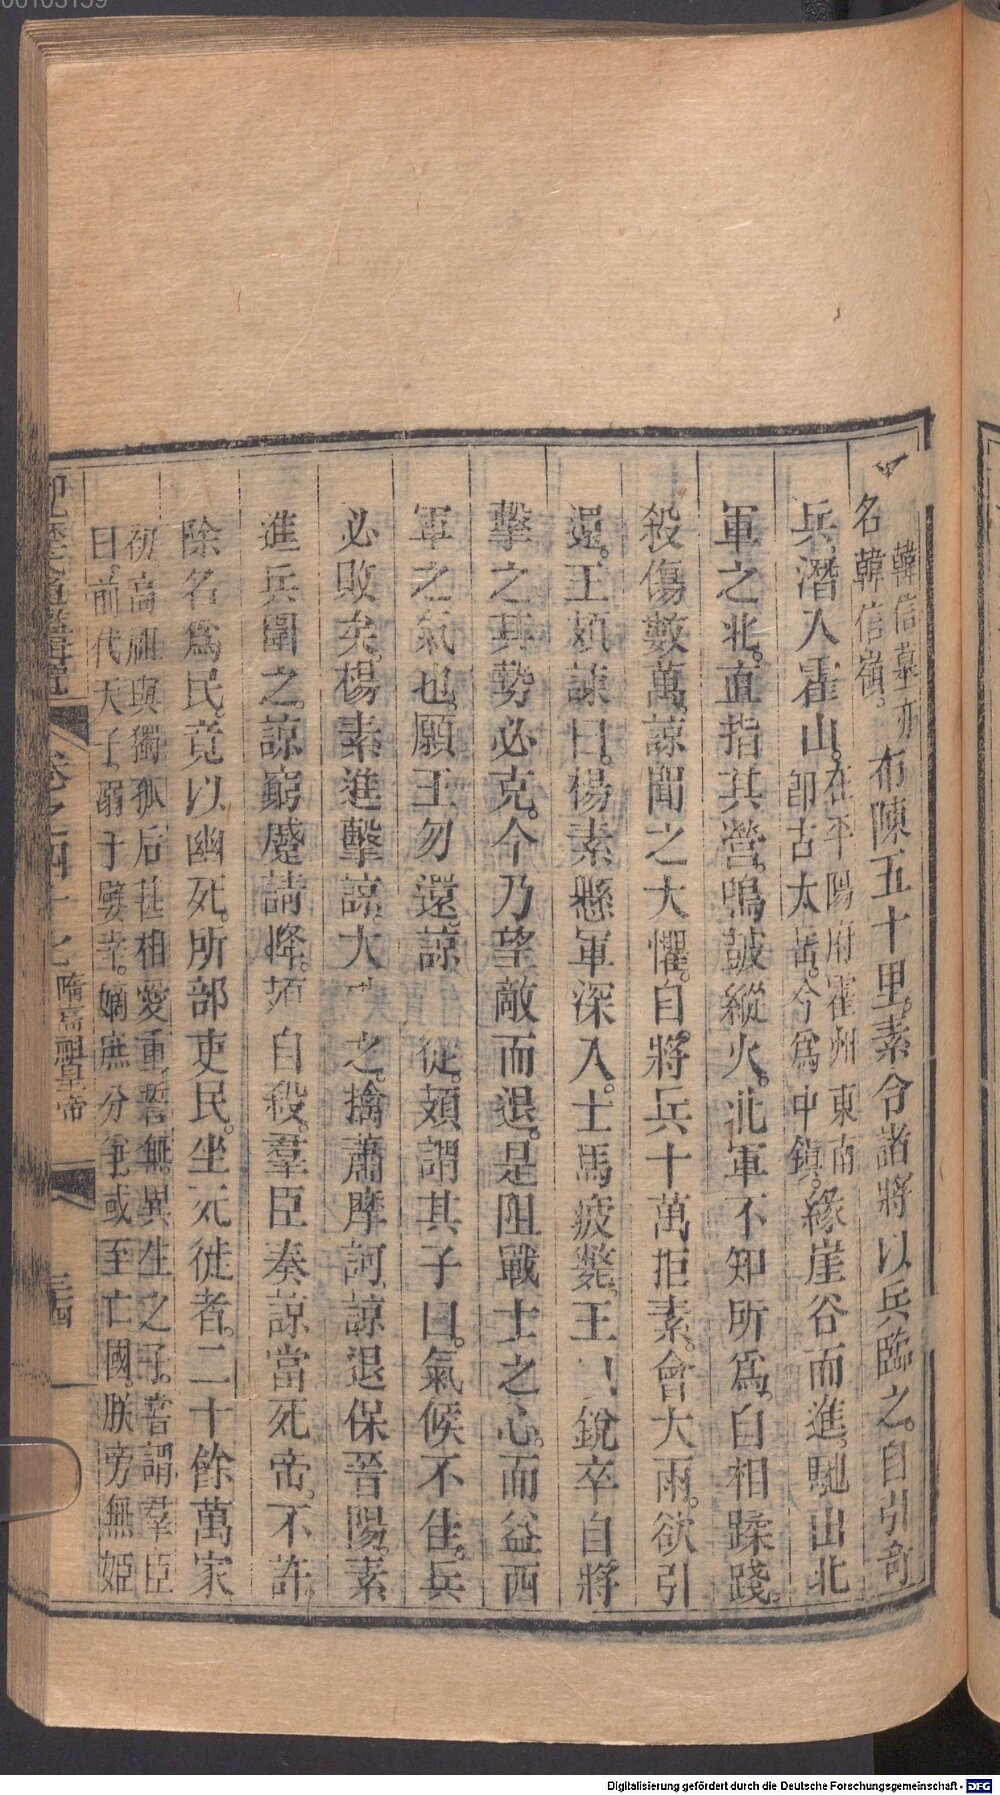 韓信墓亦名韓信嶺。布陳五十里。素令諸將以兵臨之。自引奇
兵潛入霍山。在平陽府霍州東南卽古太岳。今爲中鎭。緣崖谷而進。馳出北
軍之北。直指其營。鳴鼓縱火。北軍不知所爲。自相蹂踐。
殺傷數萬。諒聞之大懼。自將兵十萬拒素。會大雨。欲引
還。王頍諫曰。楊素懸軍深入。士馬疲斃。王 銳卒自將
擊之。其勢必克。今乃望敵而退。是阻戰士之心。而益西
軍之氣也。願王勿還。諒 從。頍謂其子曰。氣候不佳。兵
必敗矣。楊素進擊諒。大 之。擒蕭摩訶。諒退保晉陽。素
進兵圍之。諒窮蹙請降。頍自殺。羣臣奏諒當死。帝不許。
除名爲民。竟以幽死。所部吏民。坐死徙者。二十餘萬家
初高祖與獨孤后甚相愛重。誓無異生之子。嘗謂羣臣
曰。前代天子。溺于嬖幸。嫡庶分爭。或至亡國。朕旁無姬
卷之四十七 隋高祖皇帝 三四
00103159
Digitalisierung gefördert durch die Deutsche Forschungsgemeinschaft - DFG